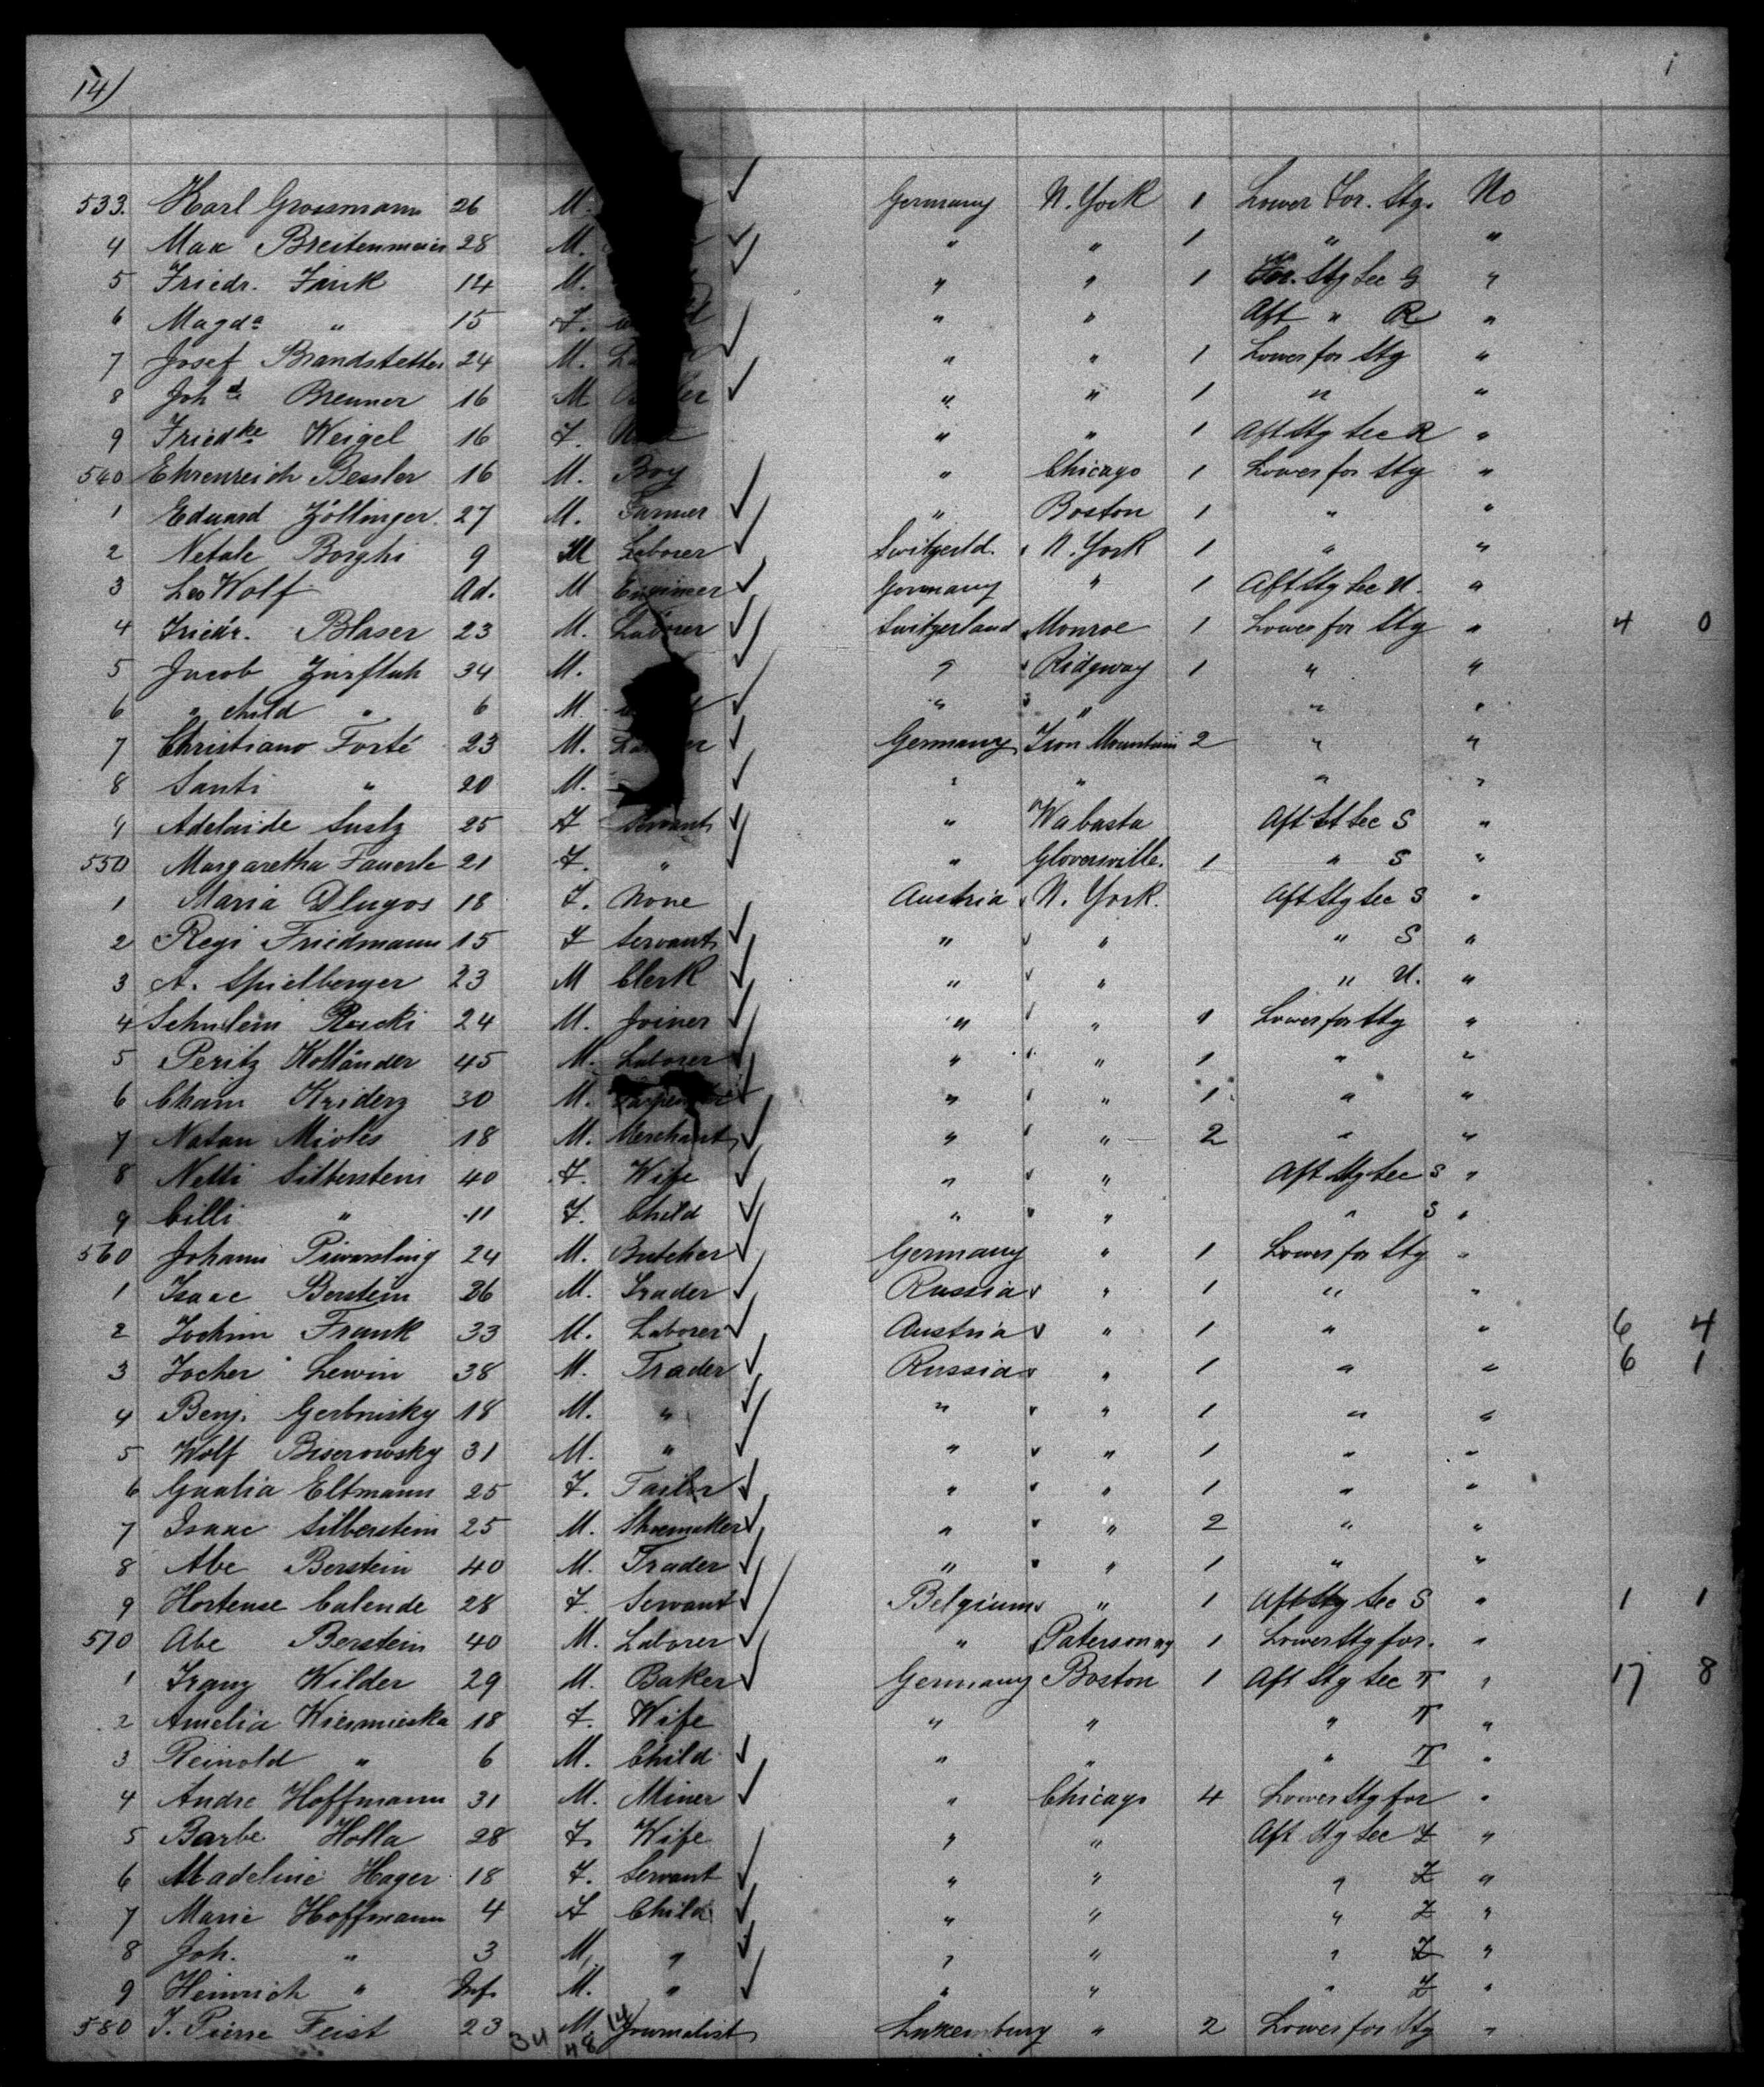 14)
533. Karl Grossmann 26 M. Germany N. York 1 Lower For. Stg. No
4 Max Breitenmaier 28 M. " " 1 " "
5 Friedr. Fink 14 M. " " 1 For. Stg Sec G "
6 Magda " 15 F. " " Aft " R "
7 Josef Brandstetter 24 M. " " 1 Lower for Stg "
8 Joh Brenner 16 M " " 1 " "
9 Friedke Weigel 16 F. " " 1 Aft Stg Sec R "
540 Ehrenreich Bessler 16 M. Boy " Chicago 1 Lower for Stg "
1 Eduard Zöllinger. 27 M. Farmer " Boston 1 " "
2 Netale Borghi 9 M Laborer Switzerld. N. York 1 " "
3 Leo Wolf Ad. M Engineer Germany " 1 Aft Stg Sec U. "
4 Friedr. Blaser 23 M. Laborer Switzerland Monroe 1 Lower for Stg " 4 0
5 Jacob Zurfluh 34 M. " Ridgway 1 " "
6 " child " 6 M. " " " "
7 Christiano Forté 23 M. Germany Iron Mountain 2 " "
8 Santi " 20 M. " " " "
9 Adelaide 25 F Servant " Wabasta Aft St Sec S "
550 Margaretha Fauerle 21 F. " " Gloversville. 1 " S "
1 Maria Dlugos 18 F. None Austria N. York. Aft Stg Sec S "
2 Regi Friedmann 15 F Servant " " " S "
3 A. Spielberger 23 M Clerk " " " U. "
4 24 M. Joiner " " 1 Lower for Stg "
5 Peritz Holländer 45 M. Laborer " " 1 " "
6 Cham Kriderz 30 M. Carpenter " " 1 " "
7 Natan Mioles 18 M. Merchant " " 2 " "
8 Netti Silberstein 40 F. Wife " " Aft Stg Sec S "
9 Cilli " 11 F. Child " " " S "
560 Johann 24 M. Butcher Germany " 1 Lower for Stg "
1 Isaac Berstein 26 M. Trader Russia " 1 " "
2 Jochim Frank 33 M. Laborer Austria " 1 " " 6 4
3 Jocher Lewin 38 M. Trader Russia " 1 " " 6 1
4 Benj. Gerbnisky 18 M. " " " 1 " "
5 Wolf Biserowsky 31 M. " " " 1 " "
6 Eltmann 25 F. Tailor " " 1 " "
7 Isaac Silberstein 25 M. Shoemaker " " 2 " "
8 Abe Berstein 40 M. Trader " " 1 " "
9 Hortense Calende 28 F. Servant Belgium " 1 Aft Stg Sec S " 1 1
570 Abe Berstein 40 M. Laborer " Paterson 1 Lower Stg for. "
1 Franz Wilder 29 M. Baker Germany Boston 1 Aft Stg Sec T " 17 8
2 Amelia Wiesmieska 18 F. Wife " " " T "
3 Reinold " 6 M. Child " " " T "
4 Andre Hoffmann 31 M. Miner " Chicago 4 Lower Stg for "
5 Barbe Holla 28 F. Wife " " Aft Stg Sec Z "
6 Madeline Hager 18 F. Servant " " " Z "
7 Marie Hoffmann 4 F Child " " " Z "
8 Joh. " 3 M. " " " " Z "
9 Heinrich " Inf. M. " " " " Z "
580 J. Pierre Feist 23 M. Journalist Luxemburg " 2 Lower for Stg "
34 48 14